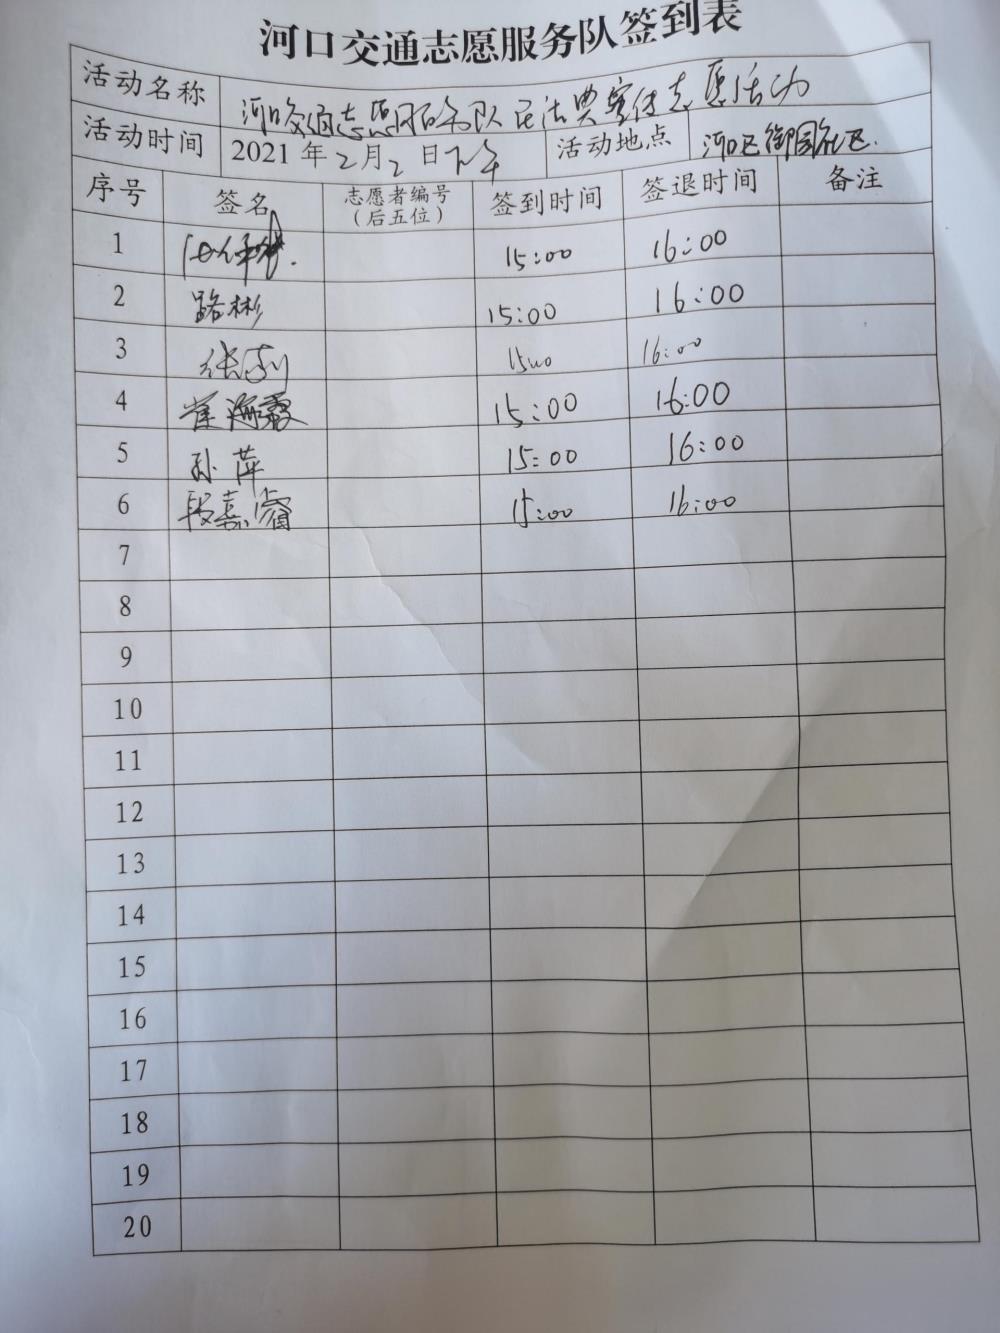 河口交通志愿服务队签到表
活动名称 河口交通志愿服务队民法典宣传志愿活动
活动时间 2021年2月2日下午 活动地点 河口区御园社区.
序号 签名 志愿者编号（后五位） 签到时间 签退时间 备注
1 15:00 16:00
2 路彬 15:00 16:00
3 15:00 16:00
4 崔海霞 15:00 16:00
5 孙萍 15:00 16:00
6 段嘉睿 15:00 16:00
7
8
9
10
11
12
13
14
15
16
17
18
19
20